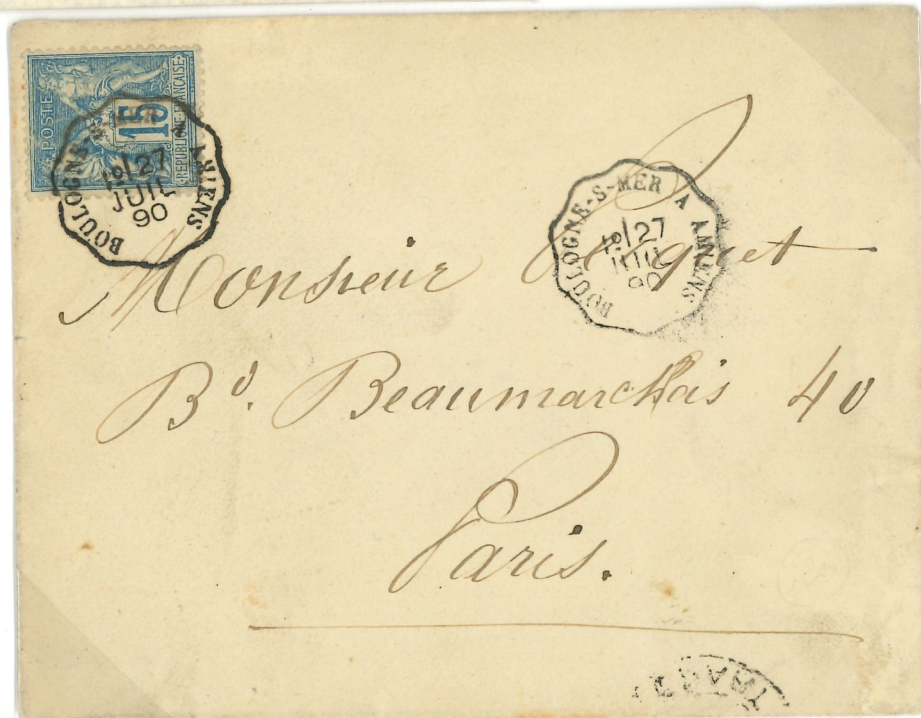 POSTE
15
REPUBLIQUE FRANÇAISE
BOULOGNE-S-MER A AMIENS
27
JUIL
90
BOULOGNE-S-MER A AMIENS
27
JUIL
90
Monsieur
Bd. Beaumarchais 40
Paris.